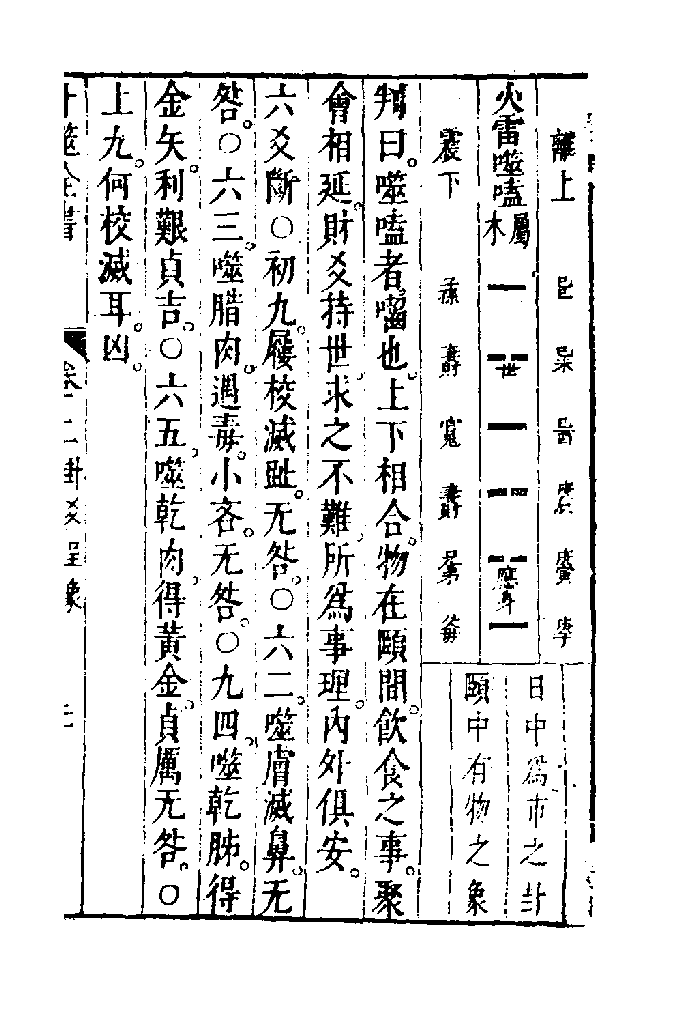 離上
火雷噬嗑屬木
世
應
身
震下
日中為市之卦
頤中有物之象
判曰噬嗑者嚙也上下相合物在頤間飲食之事聚
會相延財爻持世求之不難所為事理內外俱安
六爻斷○初九屨校滅趾无咎○六二噬膚滅鼻无
咎○六三噬腊肉遇毒小吝无咎○九四噬乾胏得
金矢利艱貞吉○六五噬乾肉得黃金貞厲无咎○
上九何校滅耳凶
卜筮全書